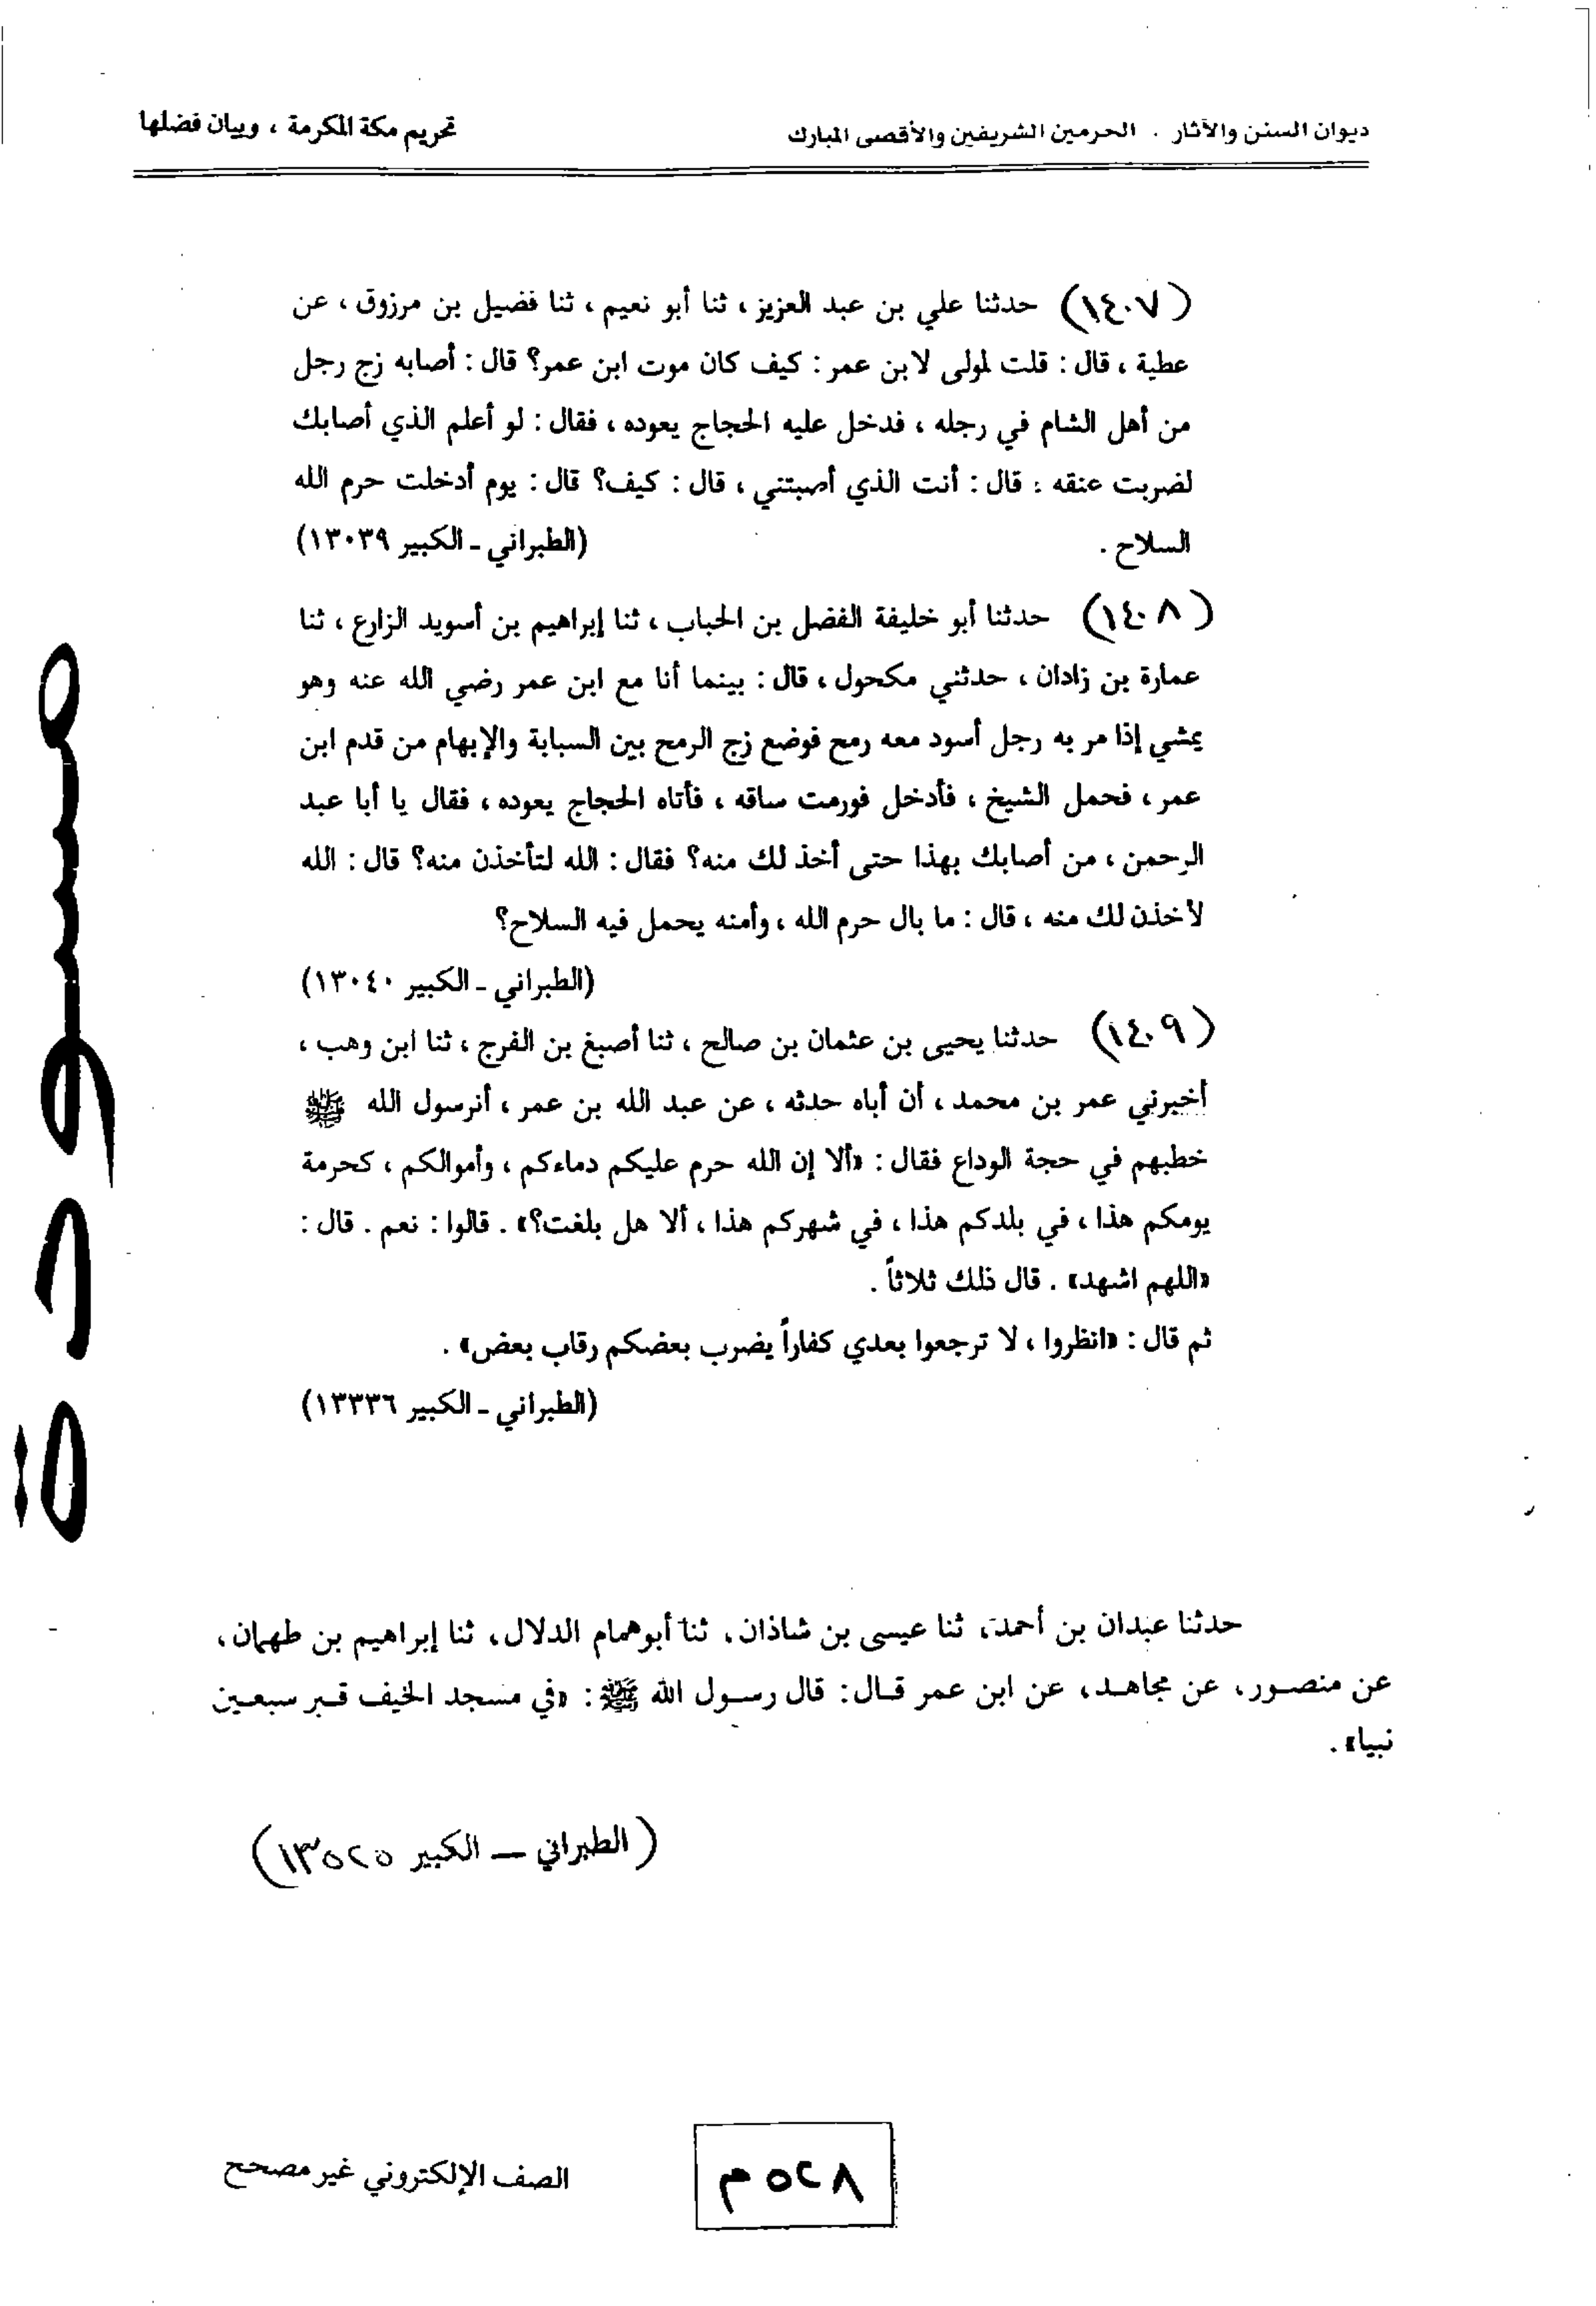 ديوان السنن والآثار . الحرمين الشريفين والأقصى المبارك
تحريم مكة المكرمة ، وبيان فضلها
(١٤٠٧) حدثنا علي بن عبد العزيز ، ثنا أبو نعيم ، ثنا فضيل بن مرزوق ، عن
عطية ، قال : قلت لمولى لابن عمر : كيف كان موت ابن عمر؟ قال : أصابه زج رجل
من أهل الشام في رجله ، فدخل عليه الحجاج يعوده ، فقال : لو أعلم الذي أصابك
لضربت عنقه : قال : أنت الذي أصبتني ، قال : كيف؟ قال : يوم أدخلت حرم الله
السلاح . (الطبراني ـ الكبير ١٣٠٣٩)
(١٤٠٨) حدثنا أبو خليفة الفضل بن الحباب ، ثنا إبراهيم بن أسويد الزارع ، ثنا
عمارة بن زادان ، حدثني مكحول ، قال : بينما أنا مع ابن عمر رضي الله عنه وهو
يمشي إذا مر به رجل أسود معه رمح فوضع زج الرمح بين السبابة والإبهام من قدم ابن
عمر ، فحمل الشيخ ، فأدخل فورمت ساقه ، فأتاه الحجاج يعوده ، فقال يا أبا عبد
الرحمن ، من أصابك بهذا حتى أخذ لك منه؟ فقال : الله لتأخذن منه؟ قال : الله
لأخذن لك منه ، قال : ما بال حرم الله ، وأمنه يحمل فيه السلاح؟
(الطبراني ـ الكبير ١٣٠٤٠)
(١٤٠٩) حدثنا يحيى بن عثمان بن صالح ، ثنا أصبغ بن الفرج ، ثنا ابن وهب ،
أخبرني عمر بن محمد ، أن أباه حدثه ، عن عبد الله بن عمر ، أنرسول الله ﷺ
خطبهم في حجة الوداع فقال : «ألا إن الله حرم عليكم دماءكم ، وأموالكم ، كحرمة
يومكم هذا ، في بلدكم هذا ، في شهركم هذا ، ألا هل بلغت؟» . قالوا : نعم . قال :
«اللهم اشهد» . قال ذلك ثلاثاً .
ثم قال : «انظروا ، لا ترجعوا بعدي كفاراً يضرب بعضكم رقاب بعض» .
(الطبراني ـ الكبير ١٣٣٣٦)
حدثنا عبدان بن أحمد، ثنا عيسى بن شاذان، ثنا أبوهمام الدلال، ثنا إبراهيم بن طهمان،
عن منصور، عن مجاهد، عن ابن عمر قال: قال رسول الله ﷺ: «في مسجد الخيف قبر سبعين
نبيا».
(الطبراني – الكبير ١٣٥٢٥)
٥٢٨ م
الصف الإلكتروني غير مصحح
مسودة